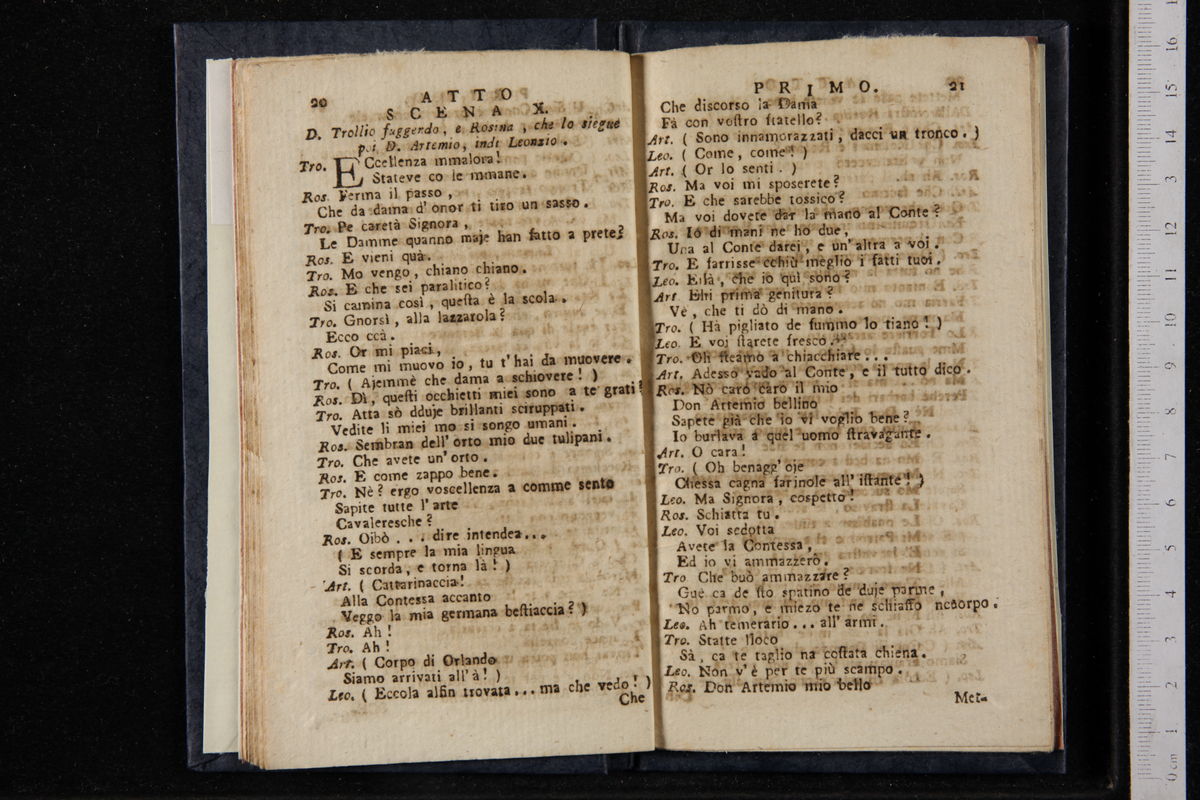 20
ATTO
SCENA X.
D. Trollio fuggendo, e Rosina, che lo siegue
poi D. Artemio, indi Leonzio.
Tro. ECcellenza mmalora!
Stateve co le mmane.
Ros. Ferma il passo,
Che da dama d' onor ti tiro un sasso.
Tro. Pe caretà Signora,
Le Damme quanno maje han fatto a prete?
Ros. E vieni quà.
Tro. Mo vengo, chiano chiano.
Ros. E che sei paralitico?
Si camina così, questa è la scola.
Tro. Gnorsì, alla lazzarola?
Ecco ccà.
Ros. Or mi piaci,
Come mi muovo io, tu t' hai da muovere.
Tro. ( Ajemmè che dama a schiovere! )
Ros. Dì, questi occhietti miei sono a te grati?
Tro. Atta sò dduje brillanti sciruppati.
Vedite li miei mo si songo umani.
Ros. Sembran dell' orto mio due tulipani.
Tro. Che avete un' orto.
Ros. E come zappo bene.
Tro. Nè? ergo voscellenza a comme sento
Sapite tutte l' arte
Cavaleresche?
Ros. Oibò . . . dire intendea...
( E sempre la mia lingua
Si scorda, e torna là! )
Art. ( Cattarinaccia!
Alla Contessa accanto
Veggo la mia germana bestiaccia? )
Ros. Ah!
Tro. Ah!
Art. ( Corpo di Orlando
Siamo arrivati all' à! )
Leo. ( Eccola alfin trovata... ma che vedo! )
Che
PRIMO. 21
Che discorso la Dama
Fà con vostro fratello?
Art. ( Sono innamorazzati, dacci un tronco. )
Leo. ( Come, come! )
Art. ( Or lo senti. )
Ros. Ma voi mi sposerete?
Tro. E che sarebbe tossico?
Ma voi dovete dar la mano al Conte?
Ros. Io di mani ne ho due,
Una al Conte darei, e un' altra a voi.
Tro. E farrisse cchiù meglio i fatti tuoi.
Leo. Eilà, che io quì sono?
Art. Ehi prima genitura?
Vè, che ti dò di mano.
Tro. ( Hà pigliato de fummo lo tiano! )
Leo. E voi starete fresco.
Tro. Oh steamo a chiacchiare...
Art. Adesso vado al Conte, e il tutto dico.
Ros. Nò caro caro il mio
Don Artemio bellino
Sapete già che io vi voglio bene?
Io burlava a quel uomo stravagante.
Art. O cara!
Tro. ( Oh benagg' oje
Chessa cagna farinole all' istante! )
Leo. Ma Signora, cospetto!
Ros. Schiatta tu.
Leo. Voi sedotta
Avete la Contessa,
Ed io vi ammazzerò.
Tro. Che buò ammazzare?
Guè ca de sto spatino de duje parme,
No parmo, e miezo te ne schiaffo ncuorpo.
Leo. Ah temerario... all' armi.
Tro. Statte lloco
Sà, ca te taglio na costata chiena.
Leo. Non v' è per te più scampo.
Ros. Don Artemio mio bello
Met-